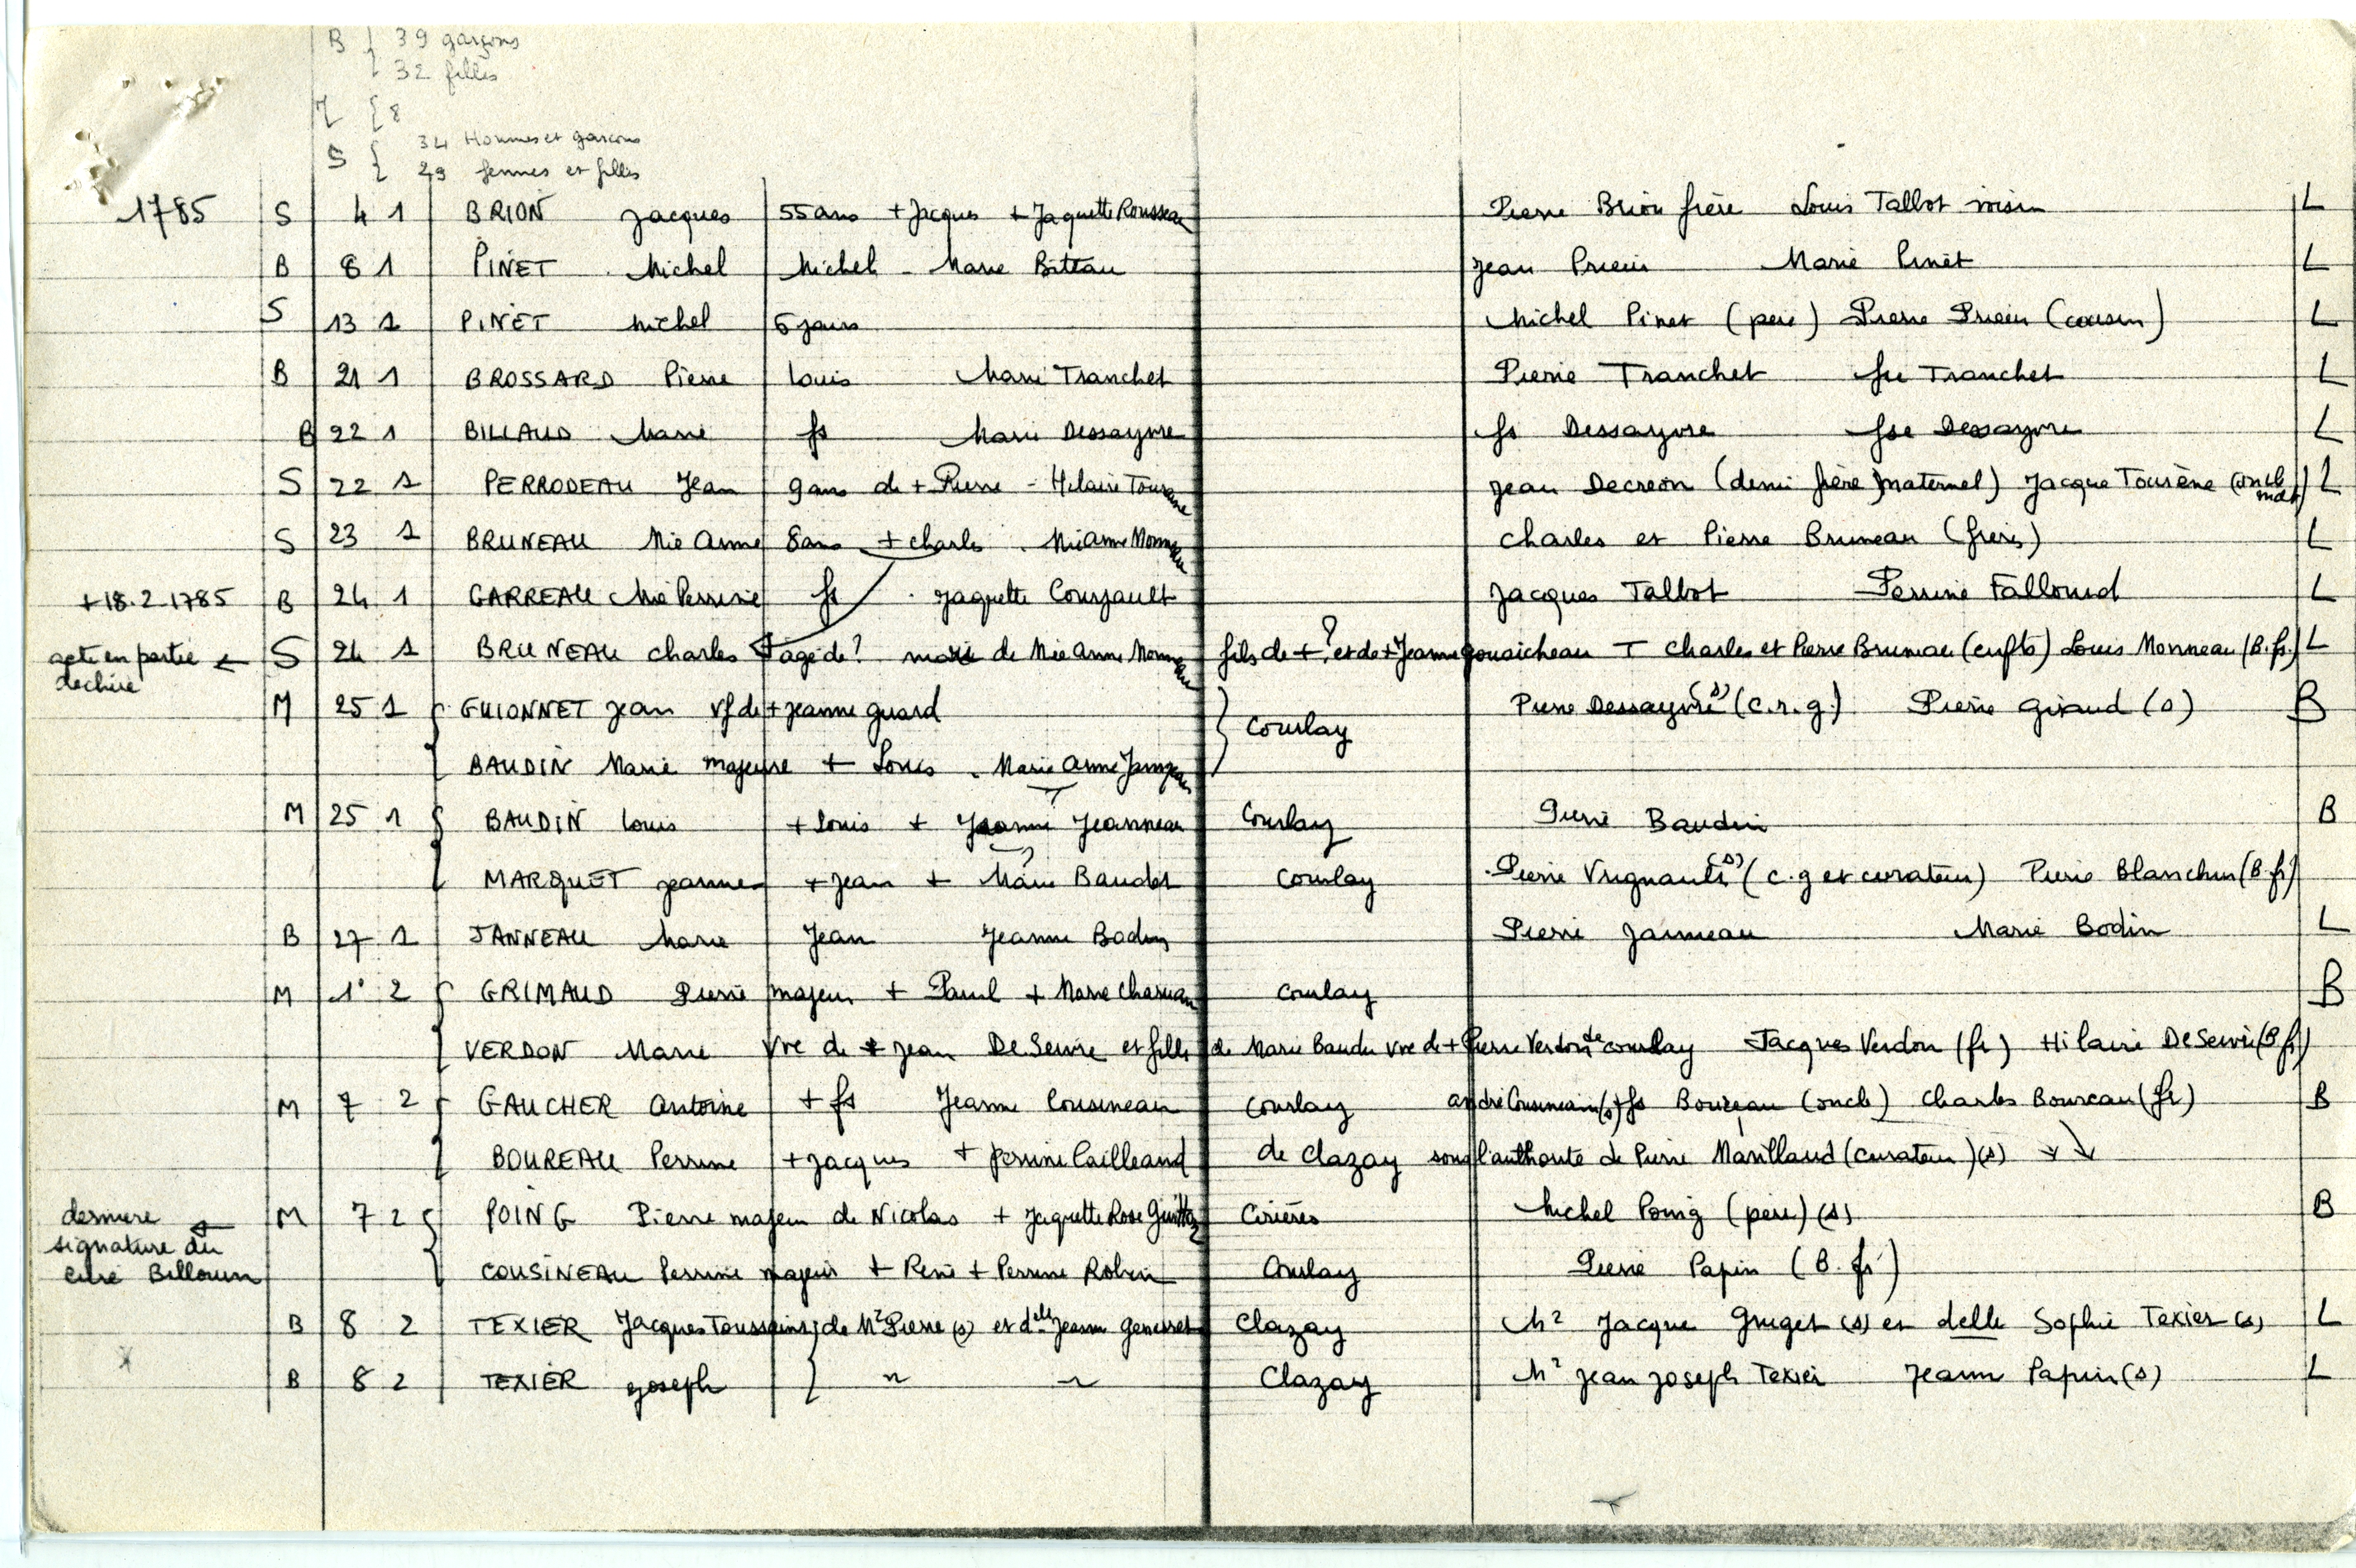 B { 39 garçons
32 filles
M { 8
S { 34 Hommes et garçons
29 femmes et filles
1785 S 4 1 BRION Jacques 55 ans + Jacques + Jaquette Rousseau Pierre Brion frère Louis Tallot voisin L
B 8 1 PINET Michel Michel - Marie Bitteau Jean Marie Pinet L
S 13 1 PINET Michel 6 jours Michel Pinet (père) Pierre (cousin) L
B 21 1 BROSSARD Pierre Louis Marie Tranchet Pierre Tranchet fse Tranchet L
B 22 1 BILLAUD Marie fs Marie Dessayvre fs Dessayvre fse Dessayvre L
S 22 1 PERRODEAU Jean 9 ans de + Pierre - Hilaire Jean Decreon (demi frère maternel) Jacque Tourène (oncle mat) L
S 23 1 BRUNEAU Mie Anne 8 ans + charles . Mie Anne Monneau Charles et Pierre Bruneau (frères) L
+ 18.2.1785 B 24 1 GARREAU Mie Perrine fs . Jaquette Coujault Jacques Tallot Perrine Falloud L
acte en partie ← S 24 1 BRUNEAU Charles âgé de ? mari de Mie Anne Monneau fils de + ? et de + Jeanne gouaicheau T Charles et Pierre Bruneau (enfts) Louis Monneau (B.fr.) L
déchiré
M 25 1 { GUIONNET Jean vf de + Jeanne guard } Courlay Pierre Dessayvre (s) (c.r.g.) Pierre Giraud (s) B
BAUDIN Marie majeure + Louis . Marie Anne
M 25 1 { BAUDIN Louis + Louis + Jeanne Jeanneau Courlay Pierre Baudin B
?
MARQUET Jeanne + Jean + Marie Baudet Courlay Pierre Vrignault (s) (c.g et curateur) Pierre Blanchin (B.fr)
B 27 1 JANNEAU Marie Jean Jeanne Bodin Pierre Janneau Marie Bodin L
M 1° 2 { GRIMAUD Pierre majeur + Paul + Marie Courlay B
VERDON Marie Vve de + Jean DeServie et fille de Marie Baudu vve de + Pierre Verdon de Courlay Jacques Verdon (fr) Hilaire DeServie (B fr)
M 7 2 { GAUCHER Antoine + fs Jeanne Cousineau Courlay André Cousineau (s) fs Boureau (oncle) Charles Boureau (fr) B
BOUREAU Perrine + Jacques + Perrine Cailleaud de Clazay sous l'authorité de Pierre Marillaud (curateur) (s)
dernière ← M 7 2 { POING Pierre majeur de Nicolas + Jaquette Rose Cirières Michel Poing (père) (s) B
signature du
curé Billouin COUSINEAU Perrine majeur + René + Perrine Robin Courlay Pierre Papin (B. fr)
B 8 2 TEXIER Jacques Toussaint } de Mr Pierre (s) et delle Jeanne Genesset Clazay Mr Jacque Gruget (s) et delle Sophie Texier (s) L
B 8 2 TEXIER Joseph } " " Clazay Mr Jean Joseph Texier Jeanne Papin (s) L